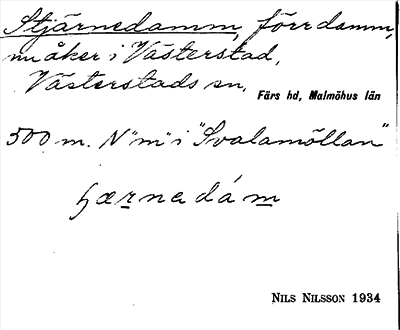 Stjärnedamm, förr damm,
nu åker i Västerstad,
Västerstads sn, Färs hd, Malmöhus län
500 m. N "m" i "Svalamöllan"
ɧærnadám
NILS NILSSON 1934